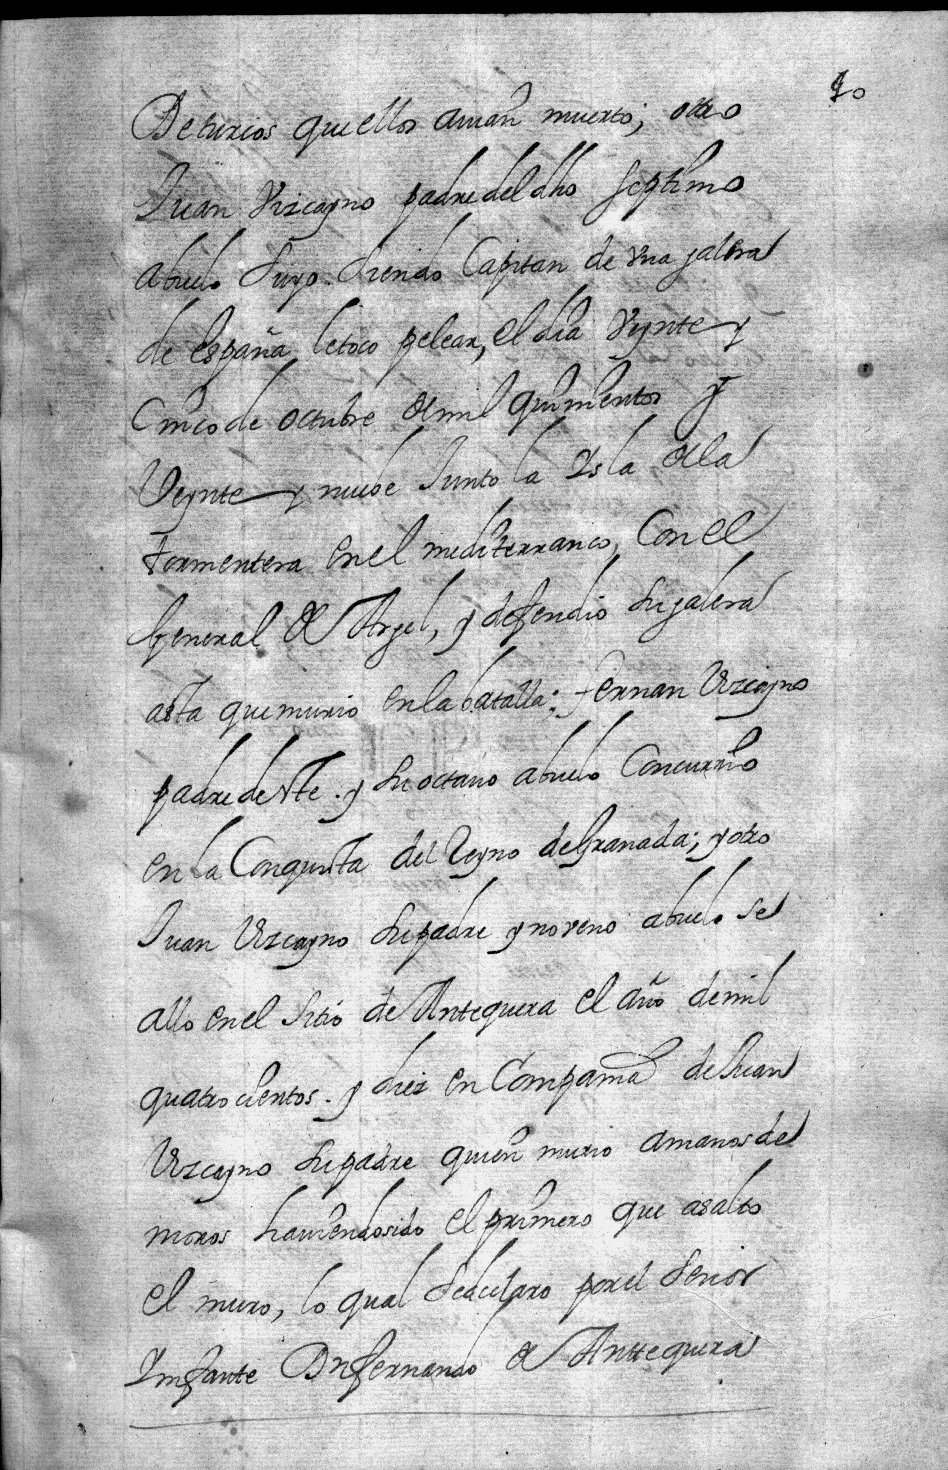 40
De turcos que ellos auian muerto; otro
Juan Vizcayno padre del dho septimo
abuelo suyo. siendo Capitan de vna galera
de españa, le toco pelear, el dia Vynte y
Cinco de octubre de mil quinientos y
Veynte y nueue Junto la Ysla de la
formentera en el mediterraneo, Con el
General de Argel, y defendio su galera
asta que murio en la batalla; fernan Vizcayno
padre deste. y su octauo abuelo Concurrio
en la Conquista del Reyno de Granada; y otro
Juan Vizcayno su padre y noveno abuelo se
allo en el sitio de Antequera el año de mil
quatrocientos. y diez en Compania de Juan
Vizcayno su padre quien murio a manos de
moros hauiendo sido el primero que asalto
el muro, lo qual se declaro por el senor
Ynfante Dn fernando de Anttequera